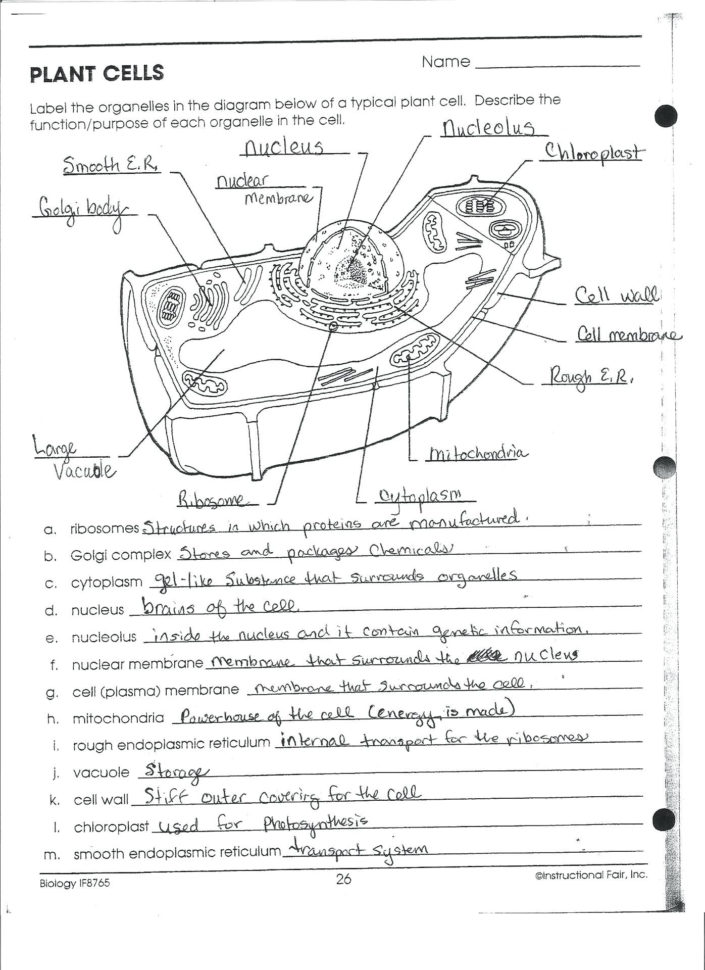 Name
PLANT CELLS
Label the organelles in the diagram below of a typical plant cell. Describe the
function/purpose of each organelle in the cell.
Nucleolus
nucleus
Chloroplast
Smooth E.R.
nuclear
membrane
Golgi body
Cell wall
Cell membrane
Rough E.R.
Large
Vacuole
Mitochondria
Ribosome
Cytoplasm
a. ribosomes Structures in which proteins are manufactured.
b. Golgi complex Stores and packages Chemicals
c. cytoplasm gel-like Substance that surrounds organelles
d. nucleus brains of the cell.
e. nucleolus inside the nucleus and it contain genetic information.
f. nuclear membrane membrane that surrounds the nucleus
g. cell (plasma) membrane membrane that surrounds the cell.
h. mitochondria Powerhouse of the cell (energy is made)
i. rough endoplasmic reticulum internal transport for the ribosomes
j. vacuole Storage
k. cell wall Stiff outer covering for the cell
l. chloroplast used for Photosynthesis
m. smooth endoplasmic reticulum transport system
Biology IF8765
26
©Instructional Fair, Inc.